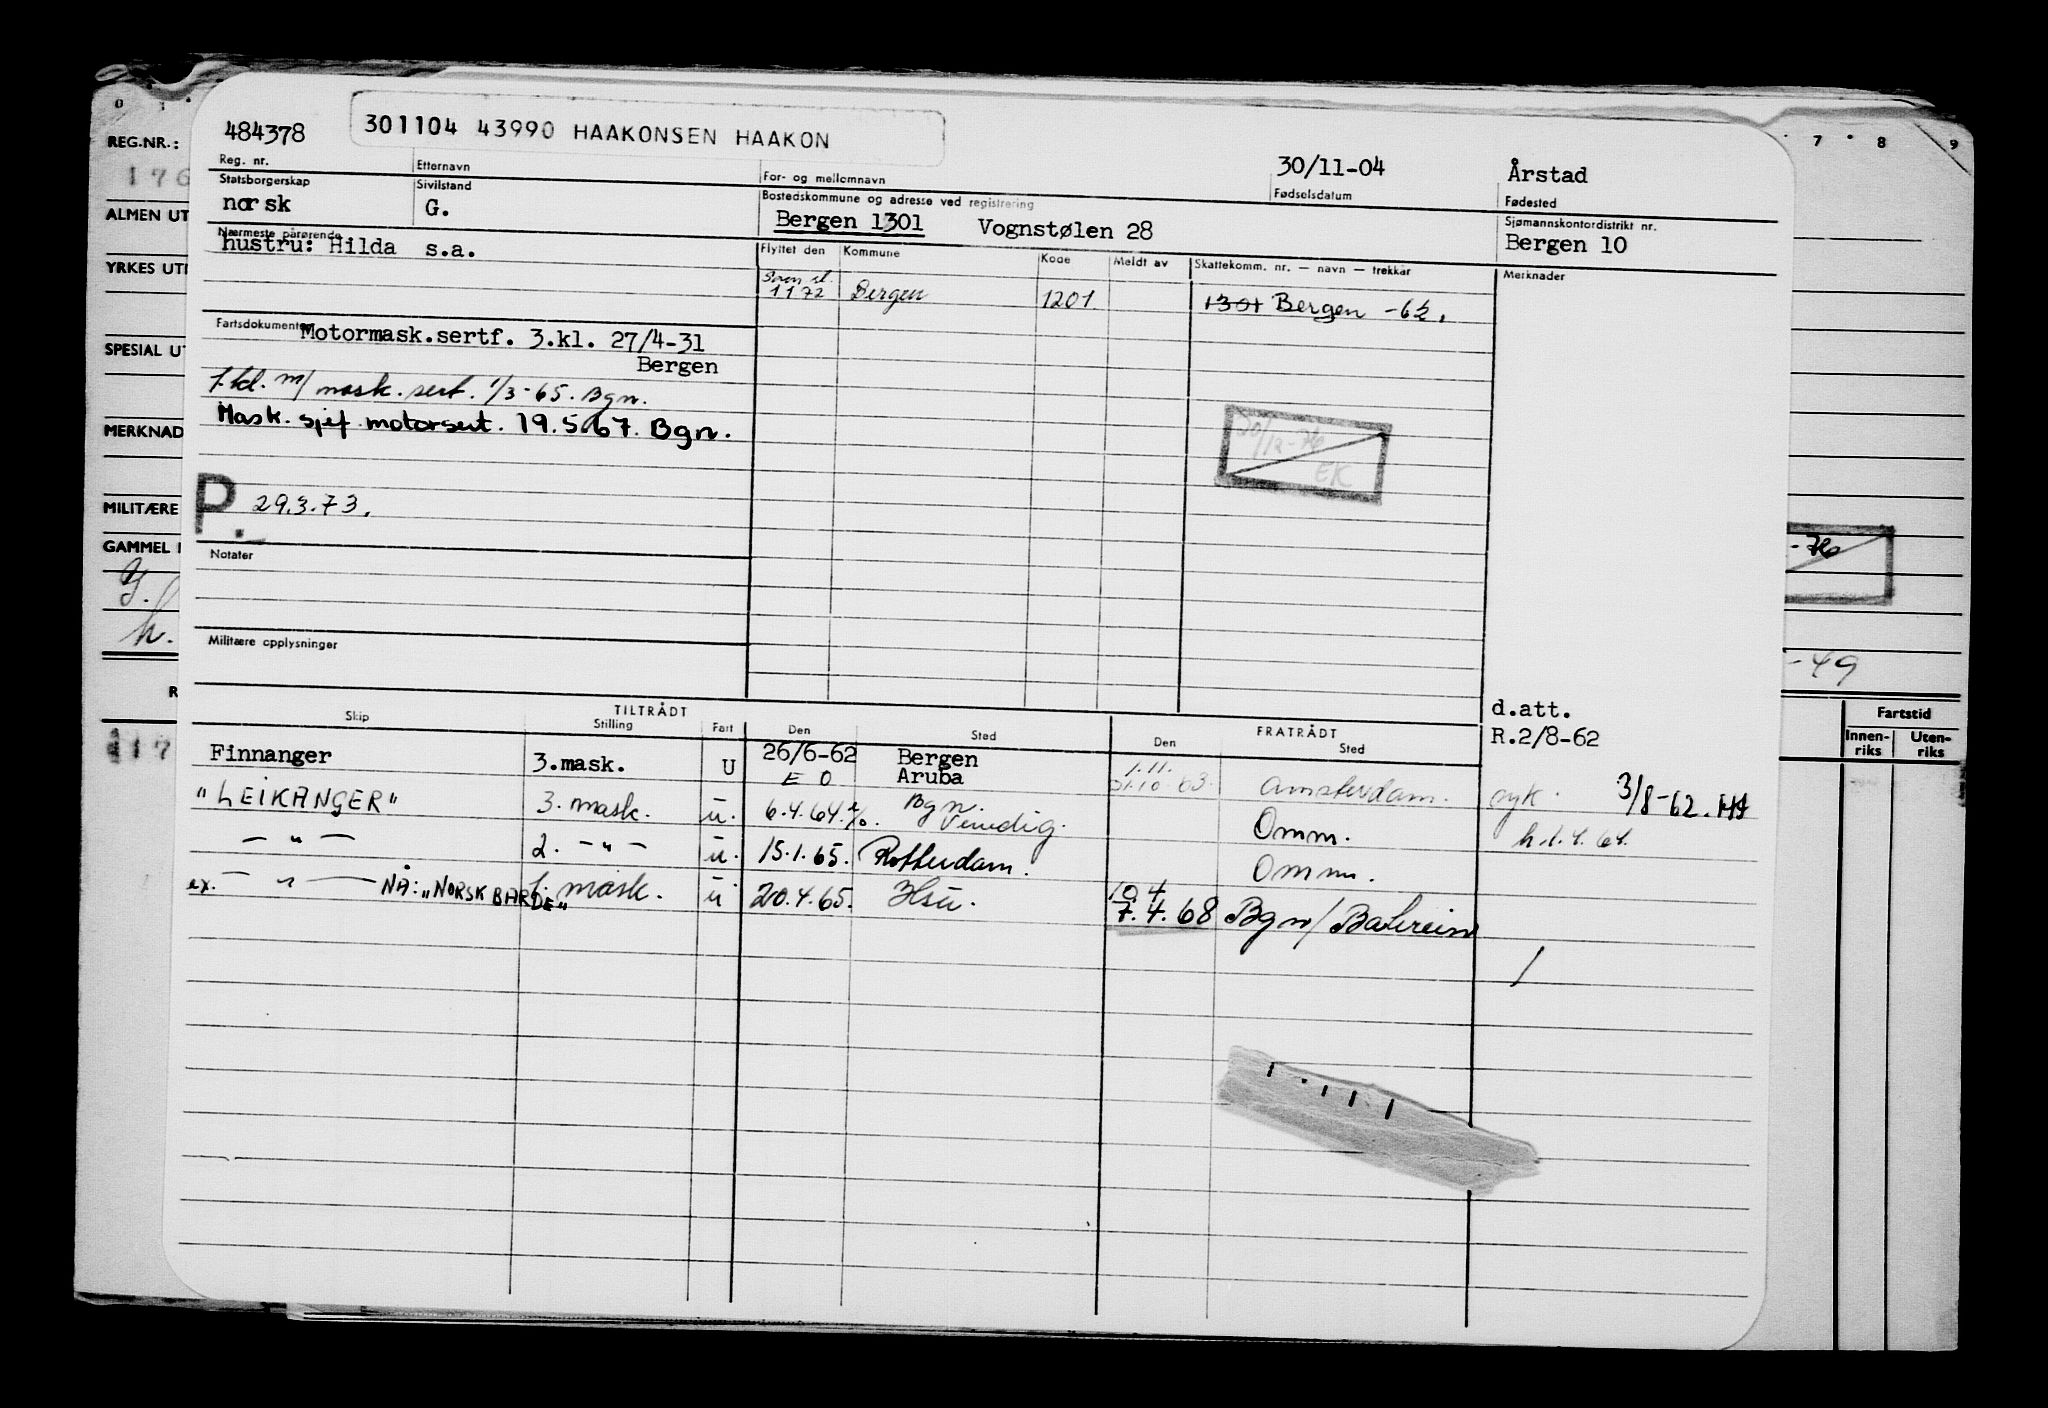 484378
301104 43990 HAAKONSEN HAAKON
30/11-04
Årstad
Reg. nr.
Etternavn
For- og mellomnavn
Fødselsdatum
Fødested
Statsborgerskap
norsk
Sivilstand
G.
Bostedskommune og adresse ved registrering
Bergen 1301 Vognstølen 28
Sjømannskontordistrikt nr.
Bergen 10
Nærmeste pårørende
hustru: Hilda s.a.
Flyttet den
Kommune
Kode
Meldt av
Skattekomm. nr. — navn — trekkår
Merknader
1 1 72
Bergen
1201
1301 Bergen -62.
Fartsdokumenter
Motormask.sertf. 3.kl. 27/4-31
Bergen
1.kl. m/ mask. sert. 1/3-65. Bgn.
Mask. sjef motorsert. 19.5.67. Bgn.
30/12-76
EK
P. 29.3.73.
Notater
Militære opplysninger
d.att.
R.2/8-62
Skip
TILTRÅDT
Stilling
Fart
Den
Sted
FRATRÅDT
Den
Sted
Finnanger 3.mask. U 26/6-62 Bergen
E O Aruba
1.11.
31.10.63. Amsterdam. syk. 3/8-62. HH
"LEIKANGER" 3. mask. u. 6.4.64. e/o. Bgn. Venedig. Omm. h. 1.4.64.
— " — 2. — " — u. 15.1.65. Rotterdam. Omm.
ex. — " — NÅ: "NORSK BARDE" 1. mask. u 20.4.65. Hsu. 10 4
7.4.68 Bgn/ Bahrein
REG.NR.:
176
ALMEN UT
YRKES UT
SPESIAL UT
MERKNAD
MILITÆRE
GAMMEL
h.
R
117
7 8 9
-76
-49
Fartstid
Innen-riks
Uten-riks